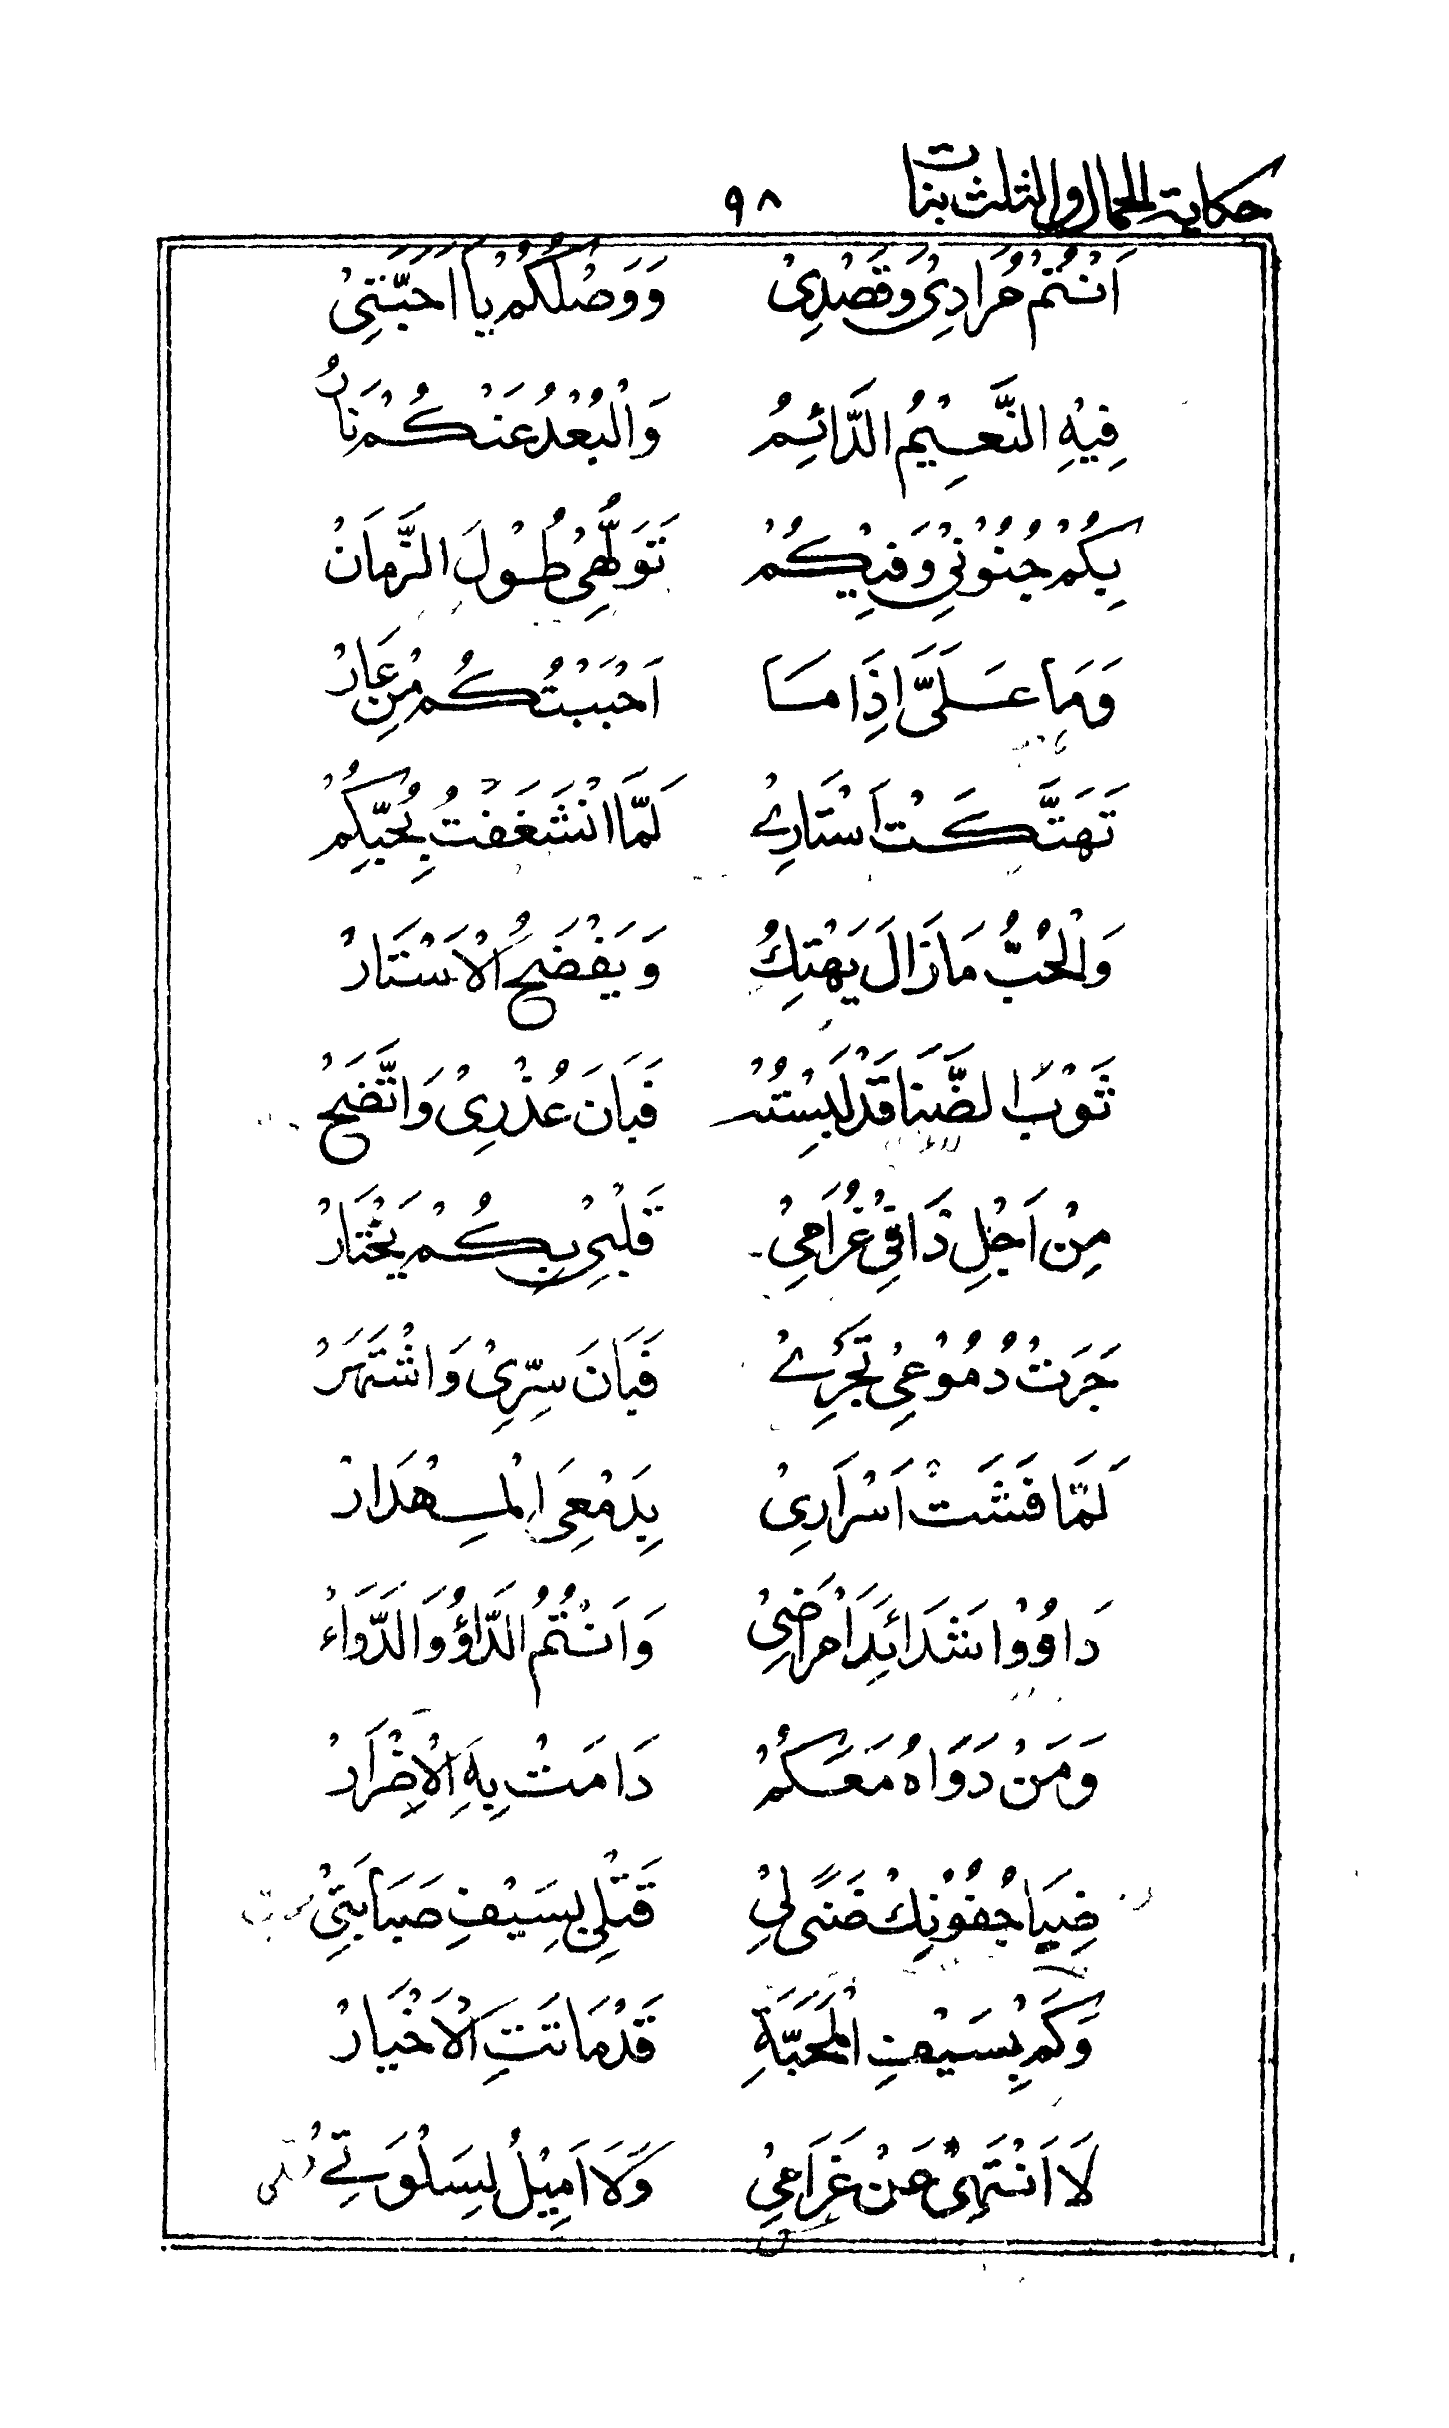 حكاية الحمال والثلث بنات ٩٨
اَنْتُمْ مُرَادِيْ وَقَصْدِيْ وَوَصْلُكُمْ يَا اَحِبَّتِيْ
فِيْهِ النَّعِيْمُ الدَّائِمُ وَالْبُعْدُ عَنْكُمْ نَارُ
بِكُمْ جُنُوْنِيْ وَفِيْكُمْ تَوَلُّهِيْ طُوْلَ الزَّمَانْ
وَمَا عَلَيَّ اِذَا مَا اَحْبَبْتُكُمْ مِنْ عَارْ
تَهَتَّكَتْ اَسْتَارِيْ لَمَّا انْشَغَفْتُ بِحُبِّكُمْ
وَالْحُبُّ مَا زَالَ يَهْتِكُ وَيَفْضَحُ الْاَسْتَارْ
ثَوْبَ الضَّنَا قَدْ لَبِسْتُهْ فَبَانَ عُذْرِيْ وَاتَّضَحْ
مِنْ اَجْلِ ذَا فِيْ غُرَامِيْ قَلْبِيْ بِكُمْ يَخْتَارْ
جَرَتْ دُمُوْعِيْ تَجْرِيْ فَبَانَ سِرِّيْ وَاشْتَهَرْ
لَمَّا فَشَتْ اَسْرَارِيْ بِدَمْعِيَ الْمِهْدَارْ
دَاوُوْا شَدَائِدَ اَمْرَاضِيْ وَاَنْتُمُ الدَّاؤُ وَالدَّوَاءْ
وَمَنْ دَوَاهُ مَعَكُمْ دَامَتْ بِهِ الْاِضْرَارْ
ضِيَا جُفُوْنِكْ ضَنًى لِيْ قَتْلِيْ بِسَيْفِ صَبَابَتِيْ
وَكَمْ بِسَيْفِ الْمَحَبَّةِ قَدْ مَاتَتِ الْاَخْيَارْ
لَا اَنْتَهِيْ عَنْ غَرَامِيْ وَلَا اَمِيْلُ لِسَلْوَتِيْ